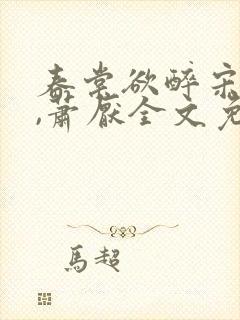 春棠欲醉宋
,萧厌全文免
馬超